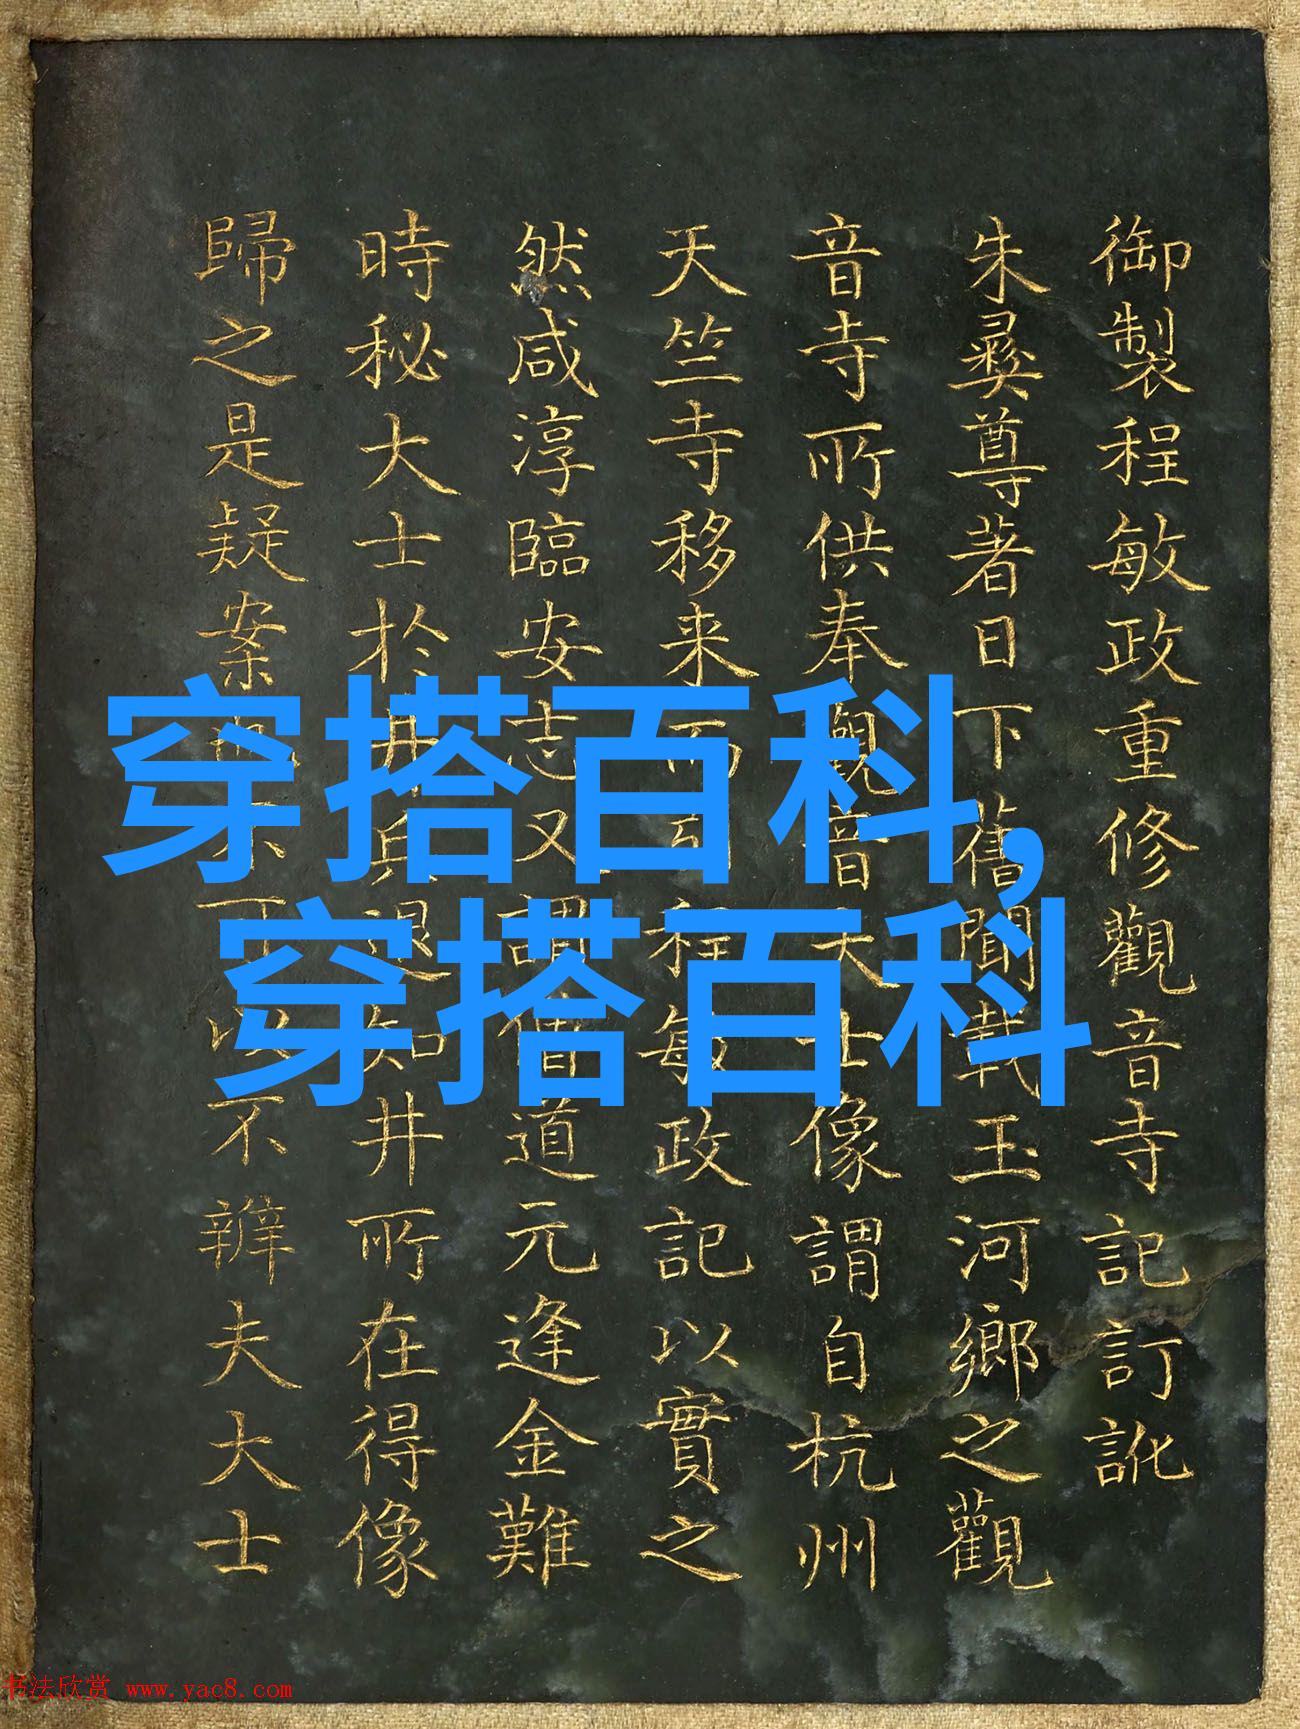 御製程敏政重修觀音寺記訂訛
朱彝尊著日下舊聞載玉河鄉之觀
音寺所供奉觀音大士像謂自杭州
天竺寺移来而程敏政記以實之
然咸淳臨安志又謂僧道元逢金難
時秘大士於井兵退知井所在得像
歸之是疑案不可以不辨夫大士
穿搭百科,
穿搭百科
书法欣赏 www.yac8.com